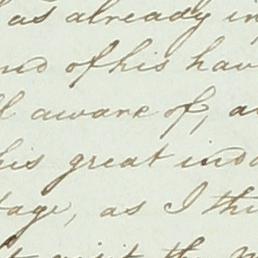 has already in
nd of his hav
ll aware of, a
his great indu
tage, as I thi